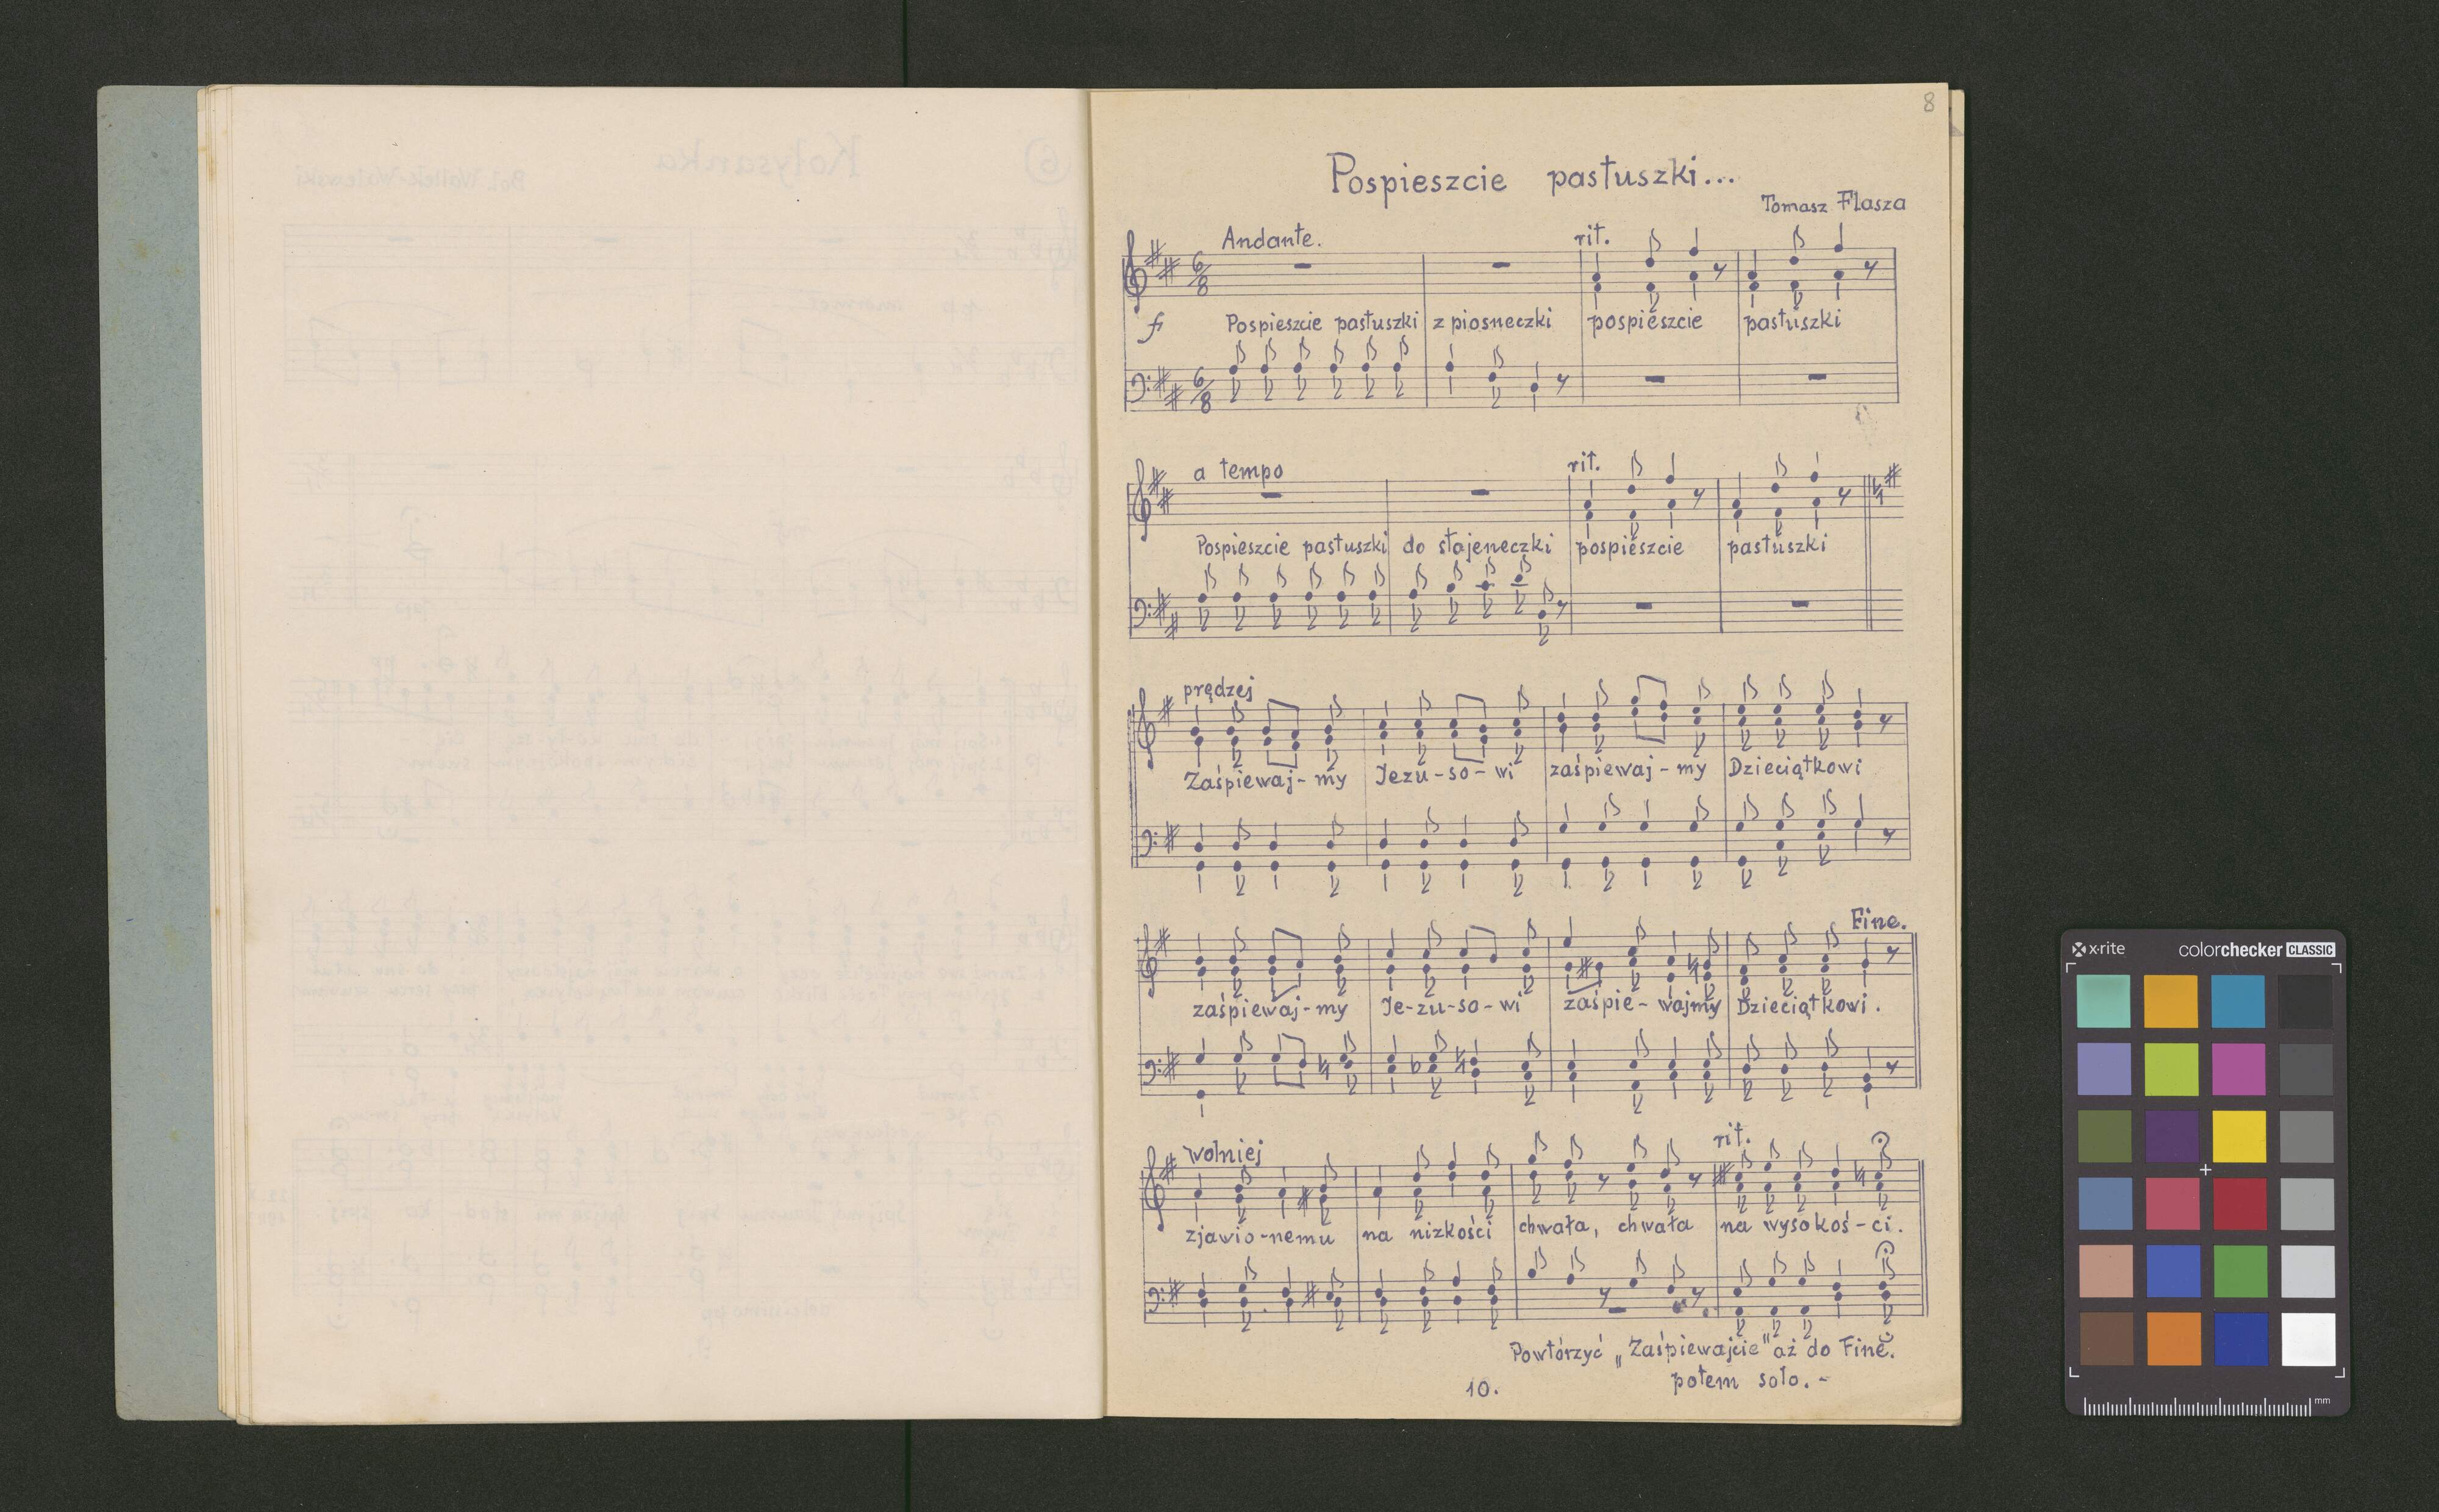 8
Pospieszcie pastuszki...
Tomasz Flasza
Andante.
rit.
6/8
f Pospieszcie pastuszki z piosneczki pospieszcie pastuszki
6/8
a tempo
rit.
Pospieszcie pastuszki do stajeneczki pospieszcie pastuszki
prędzej
Zaśpiewaj-my Jezu-so-wi zaśpiewaj-my Dzieciątkowi
Fine.
zaśpiewaj-my Je-zu-so-wi zaśpie-wajmy Dzieciątkowi.
wolniej
rit.
zjawio-nemu na nizkości chwała, chwała na wysokoś-ci.
Powtórzyć „Zaśpiewajcie" aż do Fine.
potem solo.-
10.
x·rite colorchecker CLASSIC
mm